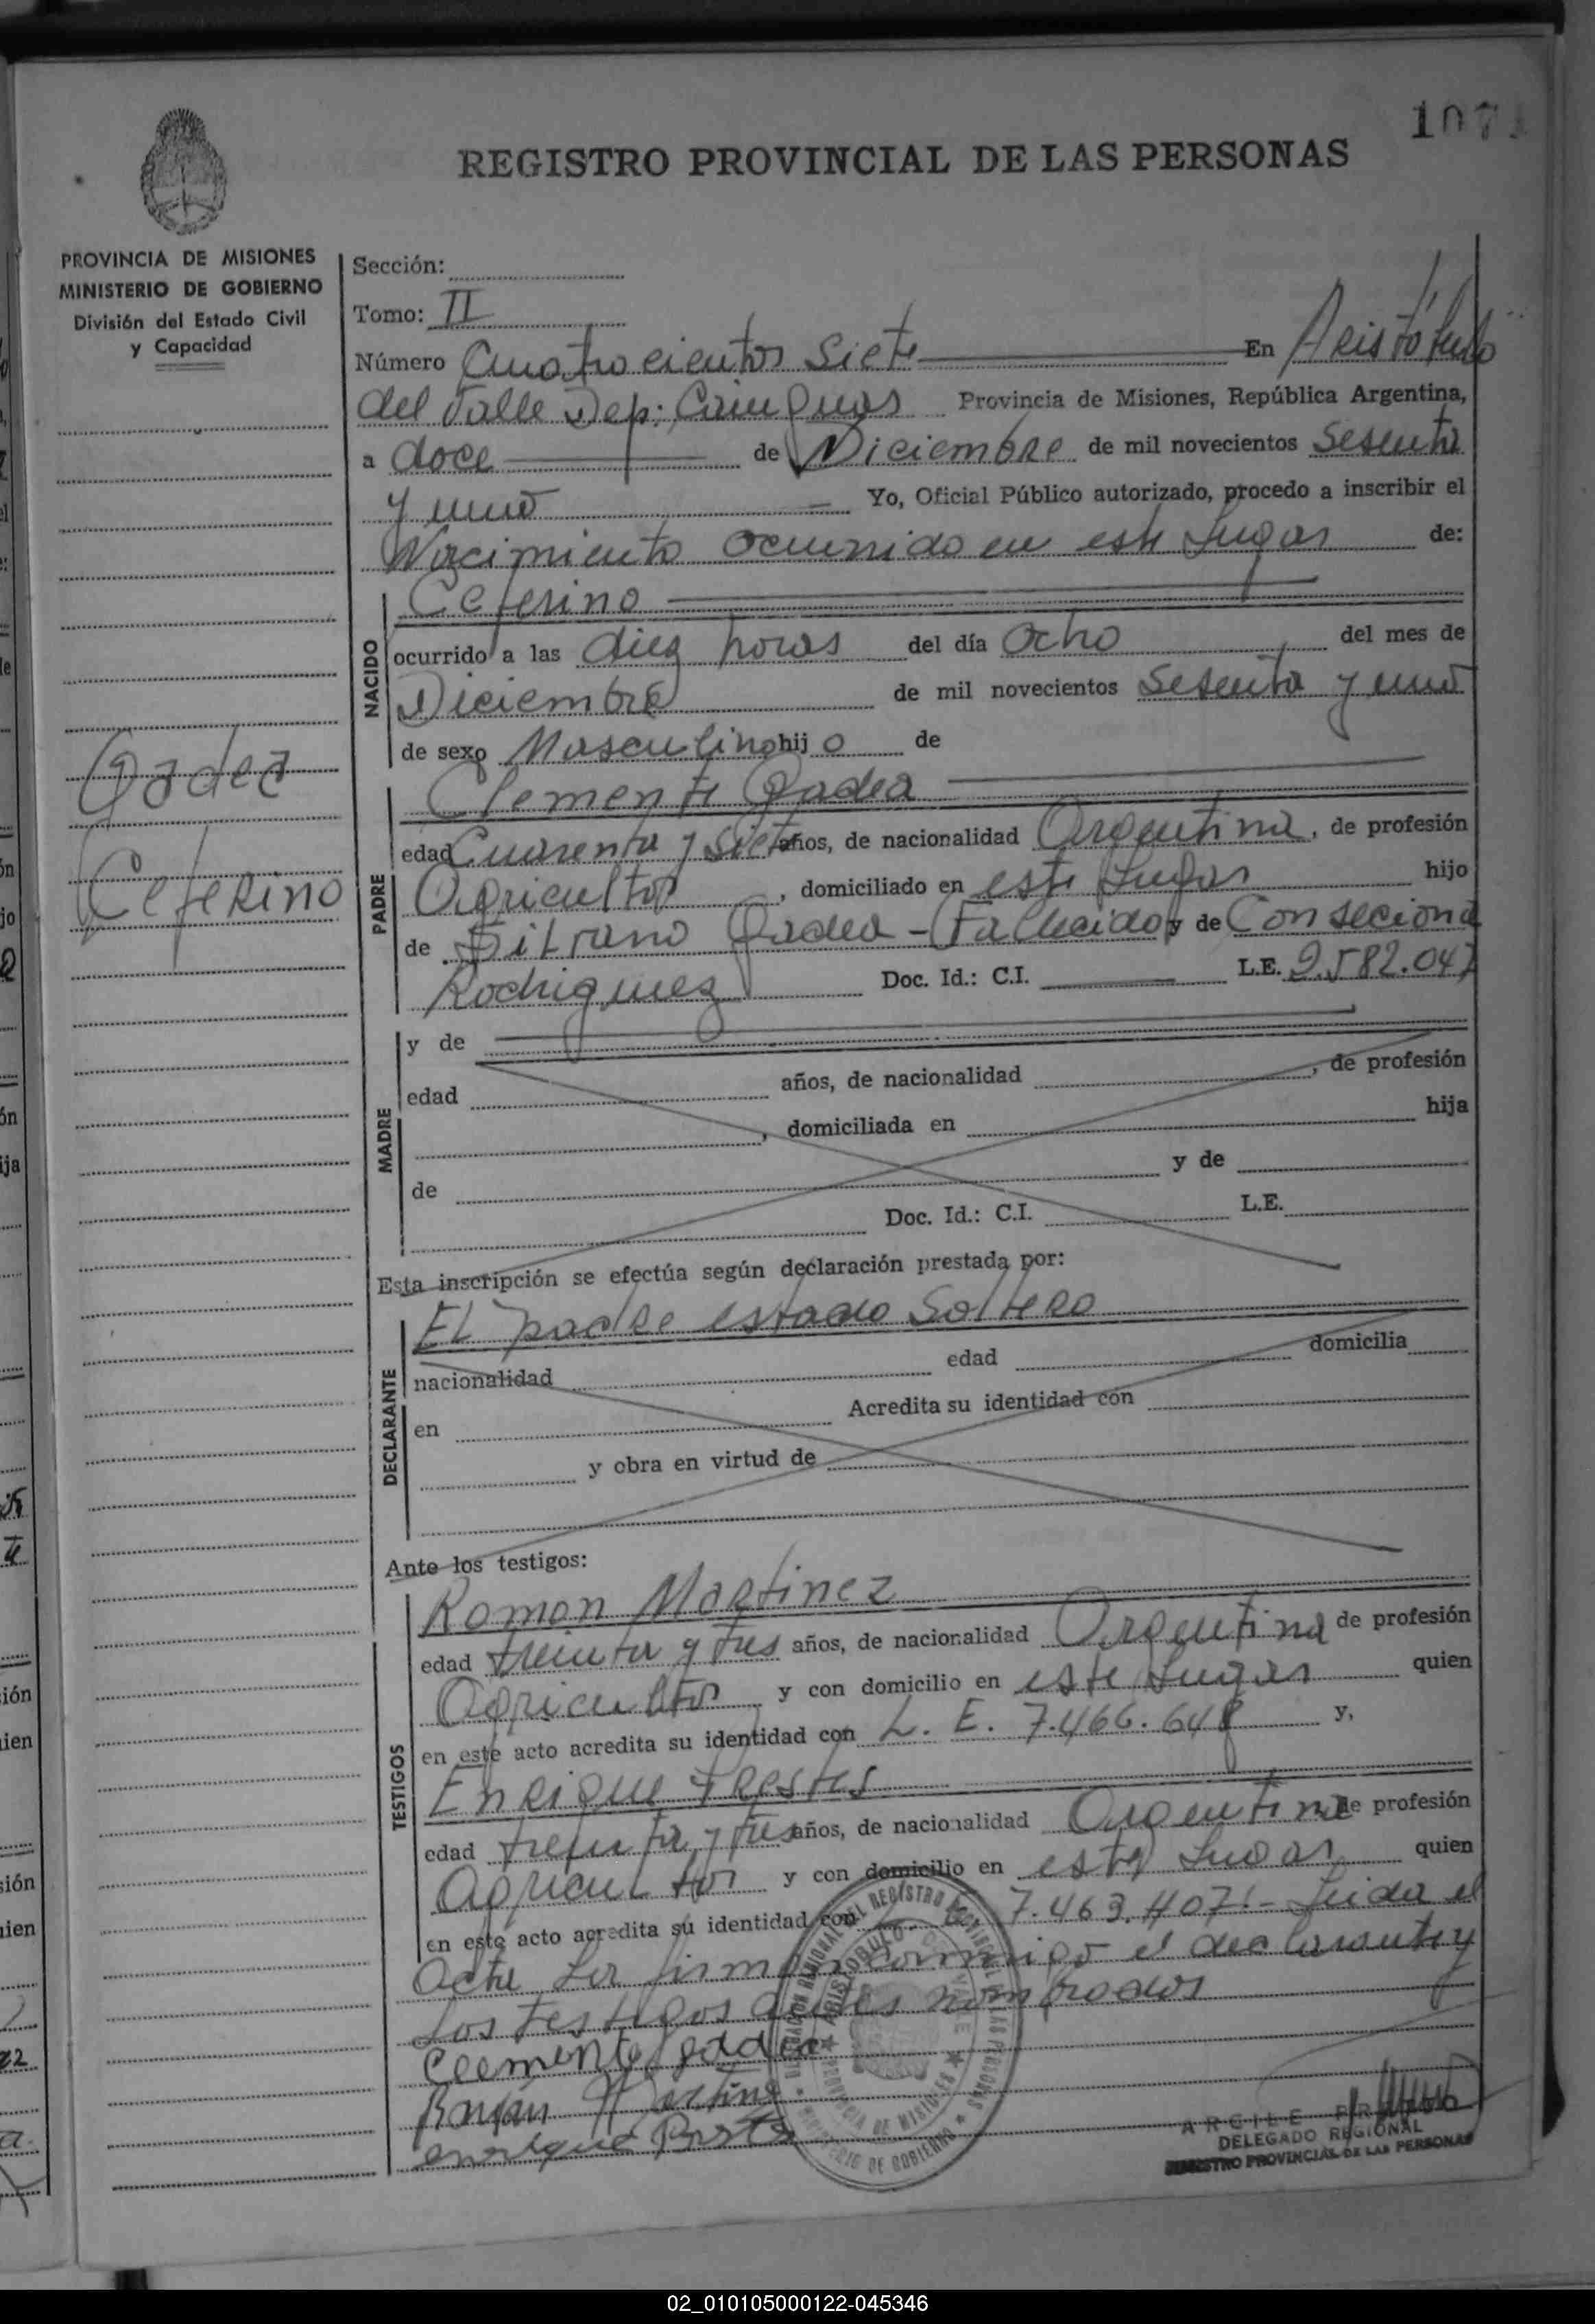 107
REGISTRO PROVINCIAL DE LAS PERSONAS
PROVINCIA DE MISIONES
MINISTERIO DE GOBIERNO
División del Estado Civil
y Capacidad
Sección:
Tomo: II
Número Cuatrocientos Siete En Aristóbulo
del Valle Dep: Cainguas Provincia de Misiones, República Argentina,
a doce de Diciembre de mil novecientos Sesenta
y uno Yo, Oficial Público autorizado, procedo a inscribir el
Nacimiento ocurrido en este Lugar de:
Ceferino
NACIDO
ocurrido a las diez horas del día Ocho del mes de
Diciembre de mil novecientos Sesenta y uno
de sexo Masculino hij o de
Gadea
Ceferino
Clemente Gadea
PADRE
edad Cuarenta y Siete años, de nacionalidad Argentina, de profesión
Agricultor, domiciliado en este Lugar hijo
de Gadea - Fallecido y de Conseciona
Rodriguez Doc. Id.: C.I. L.E. 2.582.047
MADRE
y de
edad años, de nacionalidad, de profesión
, domiciliada en hija
de y de
Doc. Id.: C.I. L.E.
Esta inscripción se efectúa según declaración prestada por:
EL padre estado Soltero
DECLARANTE
nacionalidad edad domicilia
en Acredita su identidad con
y obra en virtud de
Ante los testigos:
TESTIGOS
Ramon Martinez
edad treinta y tres años, de nacionalidad Argentina de profesión
Agricultor y con domicilio en este Lugar quien
en este acto acredita su identidad con L. E. 7.466.648 y,
Enrique Prestes
edad treinta y tres años, de nacionalidad Argentina de profesión
Agricultor y con domicilio en este Lugar quien
en este acto acredita su identidad con L. E. 7.463.407.- Leida el
Acta La firman conmigo el declarante y
Los testigos antes nombrados
Clemente gadea
enrique
DELEGACION REGIONAL DEL REGISTRO PROVINCIAL DE LAS PERSONAS
ARISTOBULO DEL VALLE
PROVINCIA DE MISIONES
MINISTERIO DE GOBIERNO
DELEGADO REGIONAL
REGISTRO PROVINCIAL DE LAS PERSONAS
02_010105000122-045346